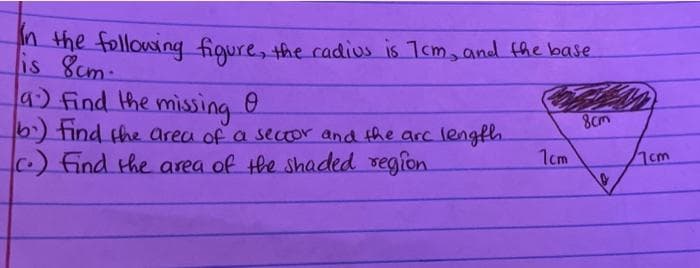 In the following figure, the radius is 7cm, and the base
is 8cm.
a.) Find the missing θ
b.) Find the area of a sector and the arc length
c.) Find the area of the shaded region
8cm
7cm
7cm
θ